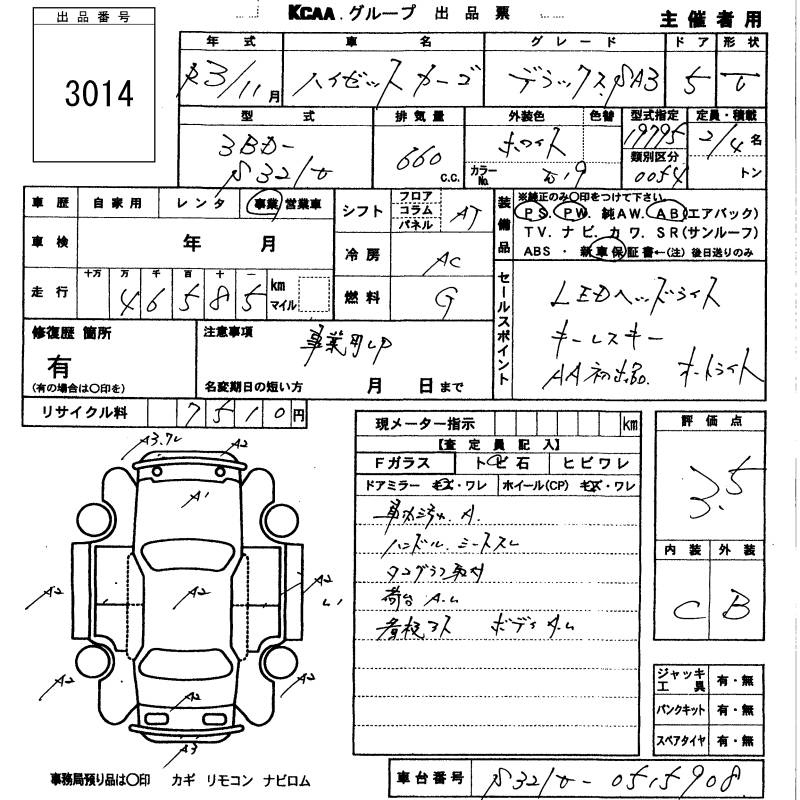 KCAA.グループ 出品票
主催者用
出品番号
3014
年式 車名 グレード ドア 形状
R3/11月 ハイゼットカーゴ デラックスSA3 5 V
型式 排気量 外装色 色替 型式指定 定員・積載
3BD-
S321V
660 c.c.
ホワイト
カラーNo. W19
19795
類別区分
0054
2/4名
トン
車歴 自家用 レンタ 事業 営業車
車検 年 月
走行 十万 万 千 百 十 一
46585 km マイル
シフト フロア コラム パネル AT
冷房 AC
燃料 G
装備品
※純正のみ〇印をつけて下さい。
PS. PW. 純AW. AB(エアバック)
TV. ナビ. カワ. SR(サンルーフ)
ABS ・ 新車保証書←(注) 後日送りのみ
セールスポイント
LEDヘッドライト
キーレスキー
AA初出品. オートライト
修復歴 箇所
有
(有の場合は〇印を)
注意事項
事業用UP
名変期日の短い方 月 日まで
リサイクル料 7510円
現メーター指示 km
【査定員記入】
Fガラス トビ石 ヒビワレ
ドアミラー キズ・ワレ ホイール(CP) キズ・ワレ
ハンドル. シートスレ
タコグラフ取付
荷台 A.U
ボディ A.U
評価点
3.5
内装 外装
C B
ジャッキ工具 有・無
パンクキット 有・無
スペアタイヤ 有・無
A2
A1
A2 A2 A2
A2 A2 A2
A3
事務局預り品は〇印 カギ リモコン ナビロム
車台番号 S321V-0515908